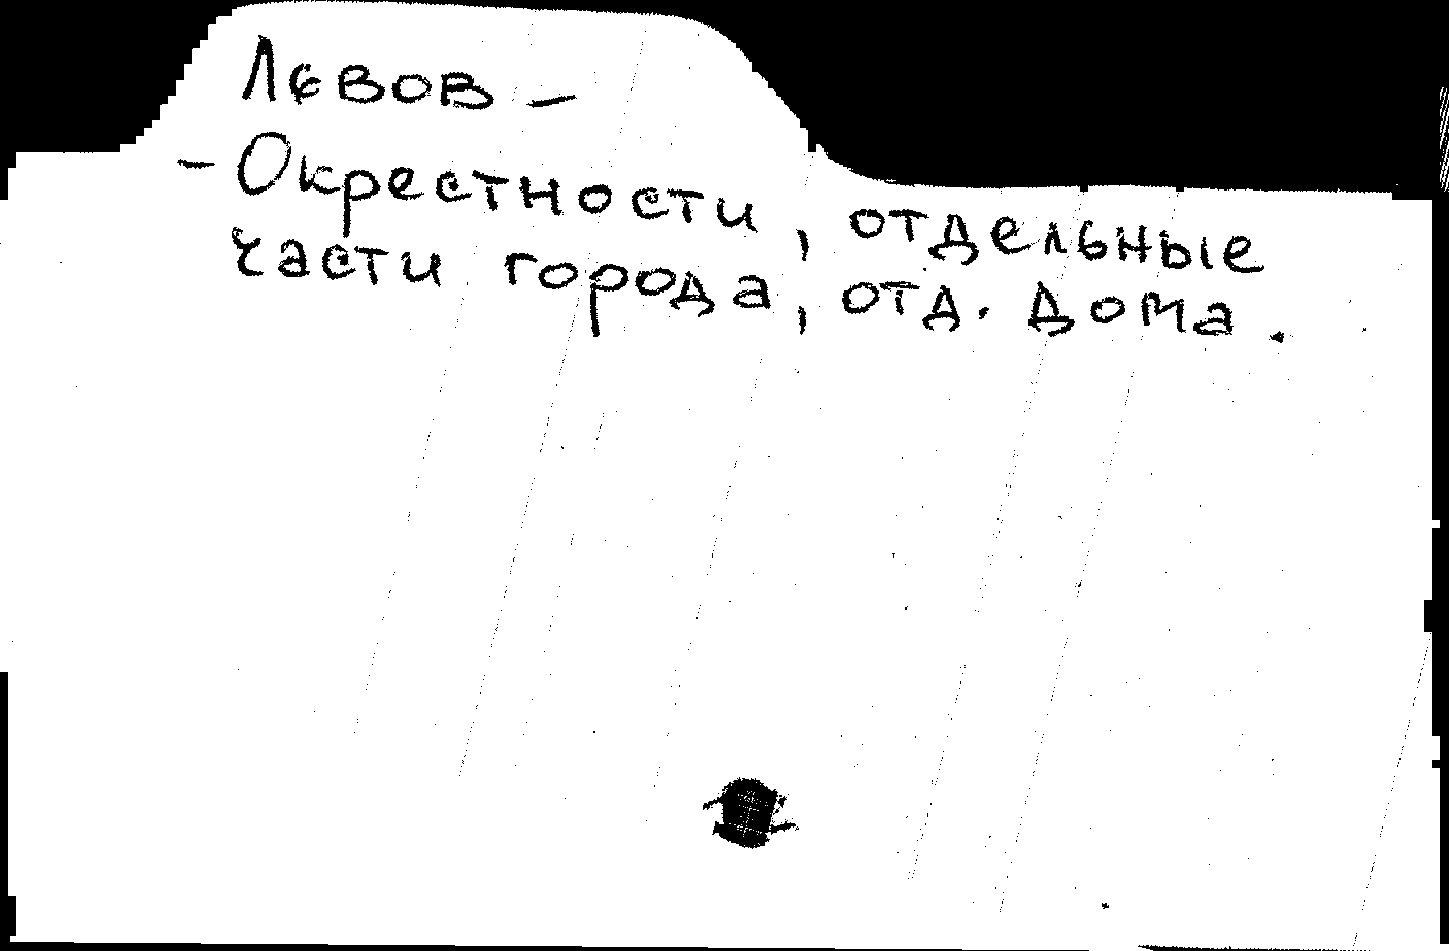 Львов –
– Окрестности, отдельные
части города, отд. дома.